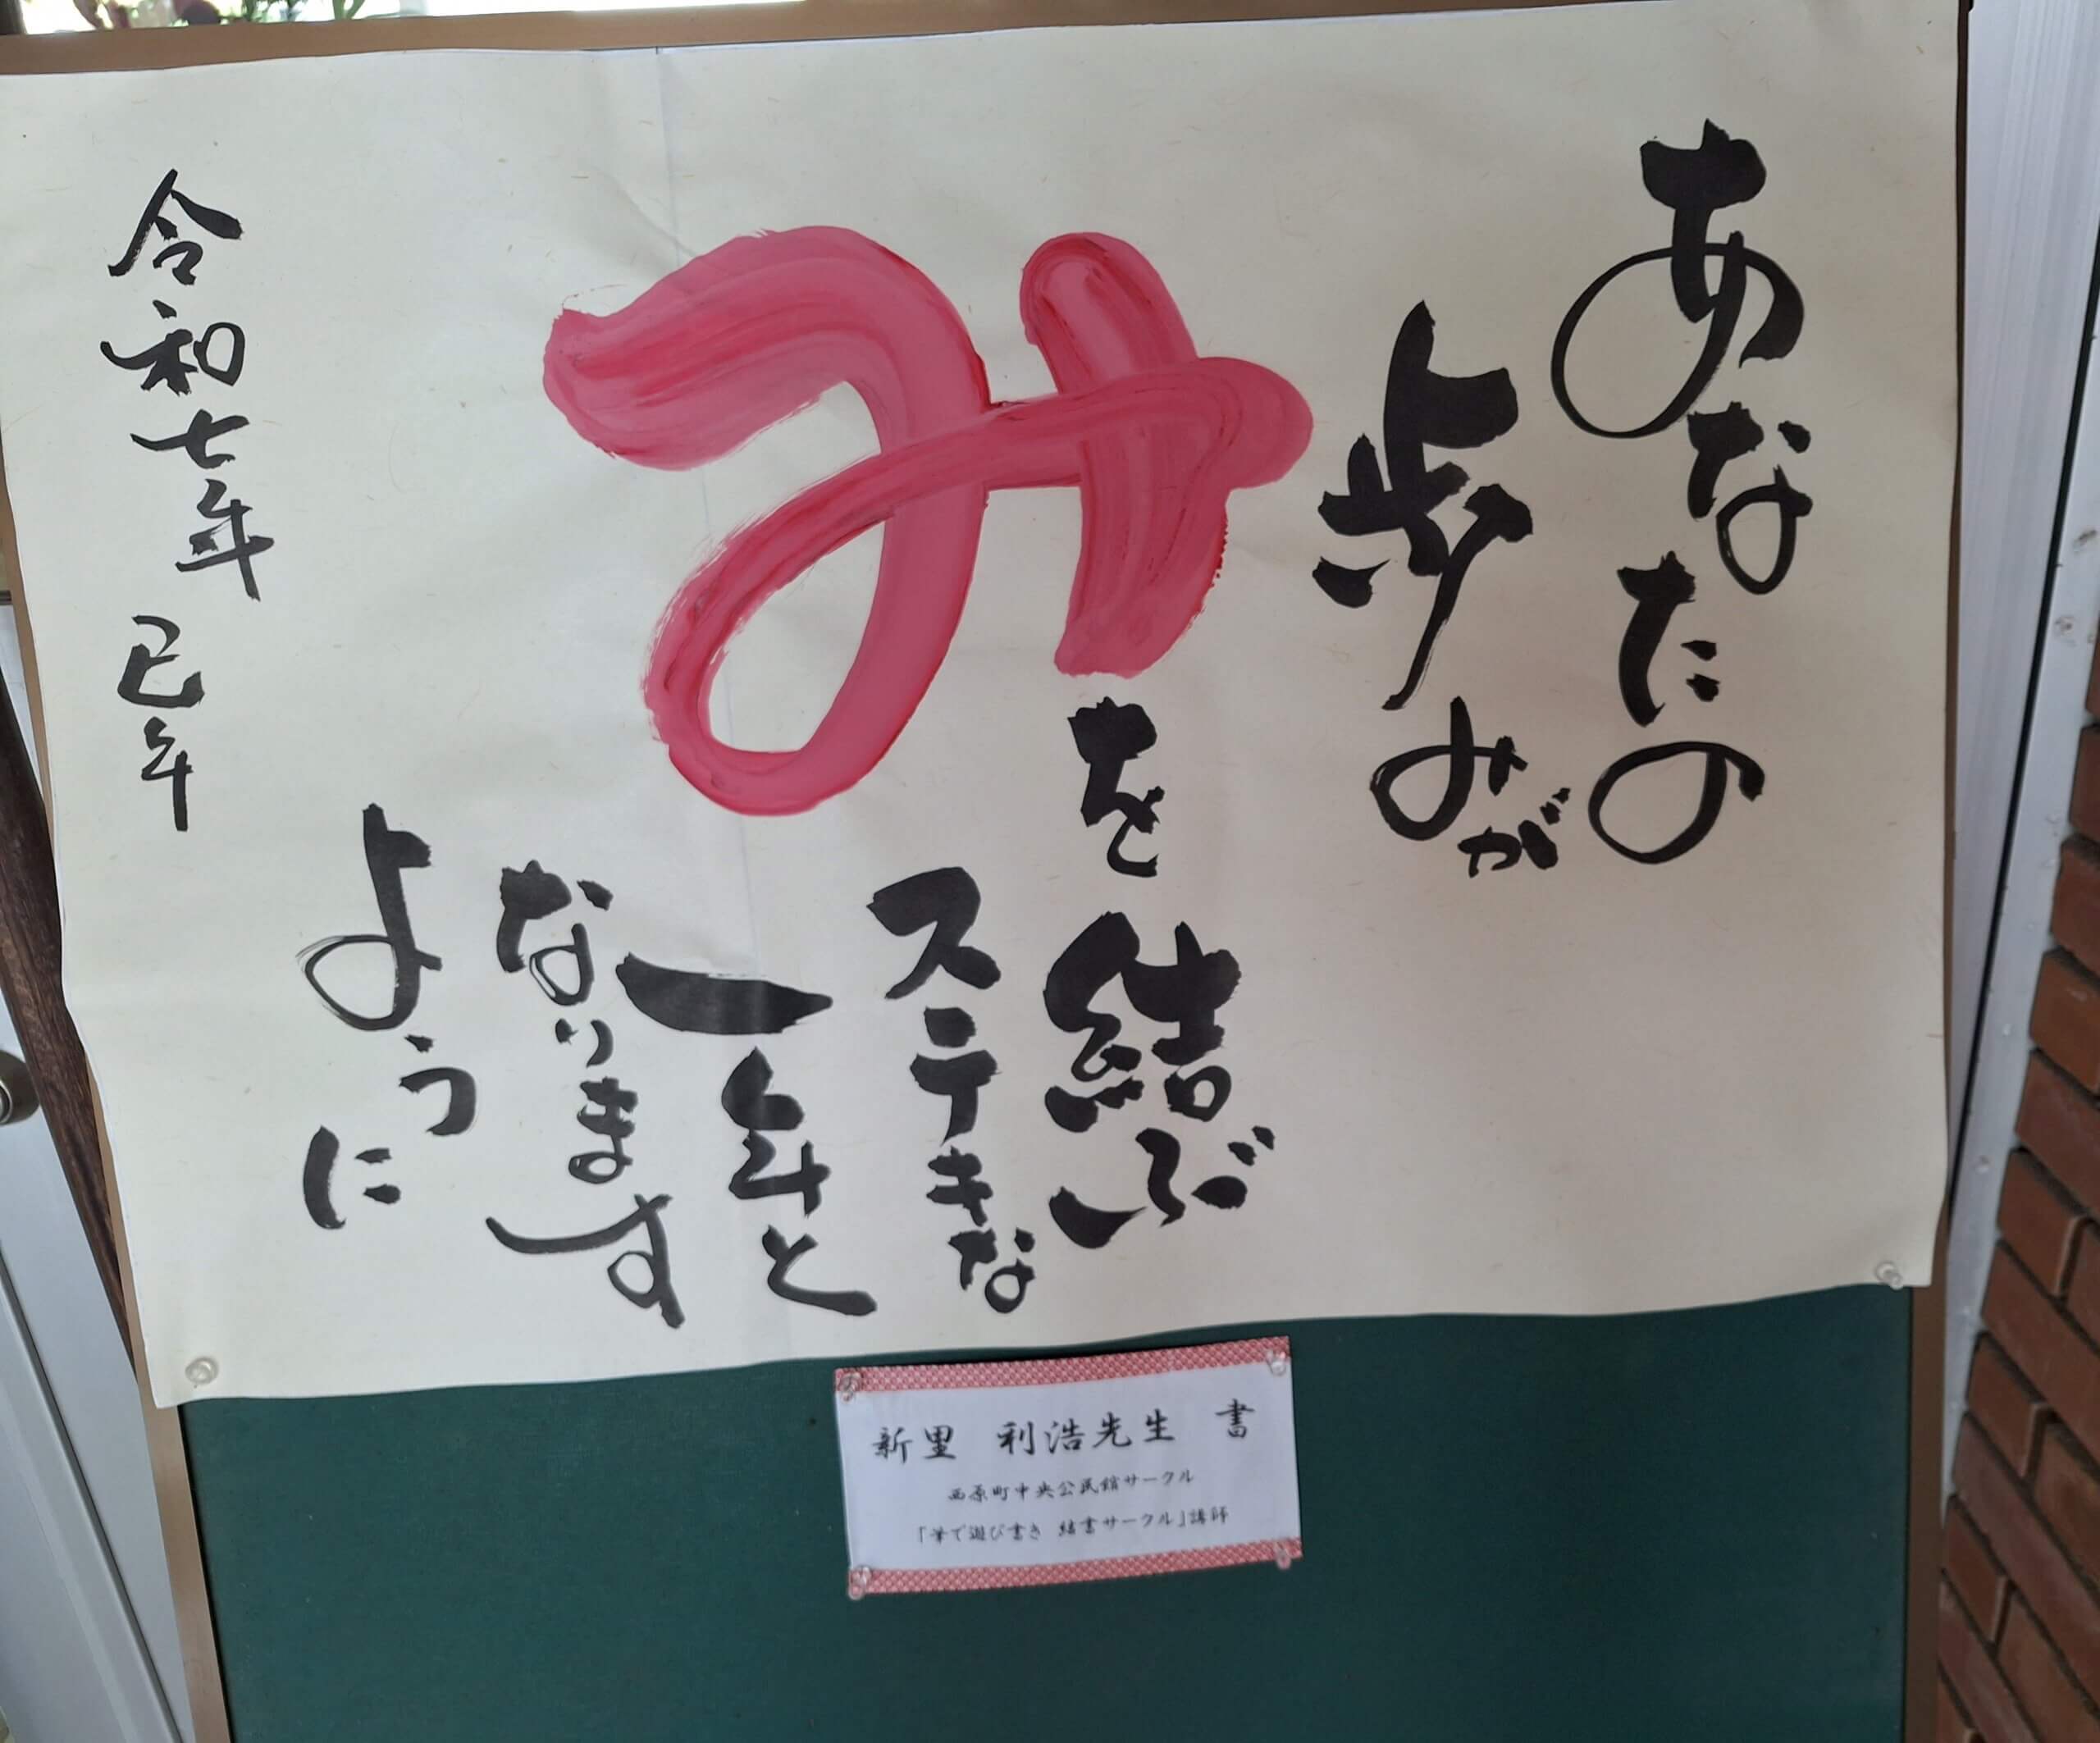 あなたの
歩みが
みを結ぶ
ステキな
一年と
なります
ように
令和七年 巳年
新里 利浩先生 書
西原町中央公民館サークル
「筆で遊び書き 結書サークル」講師